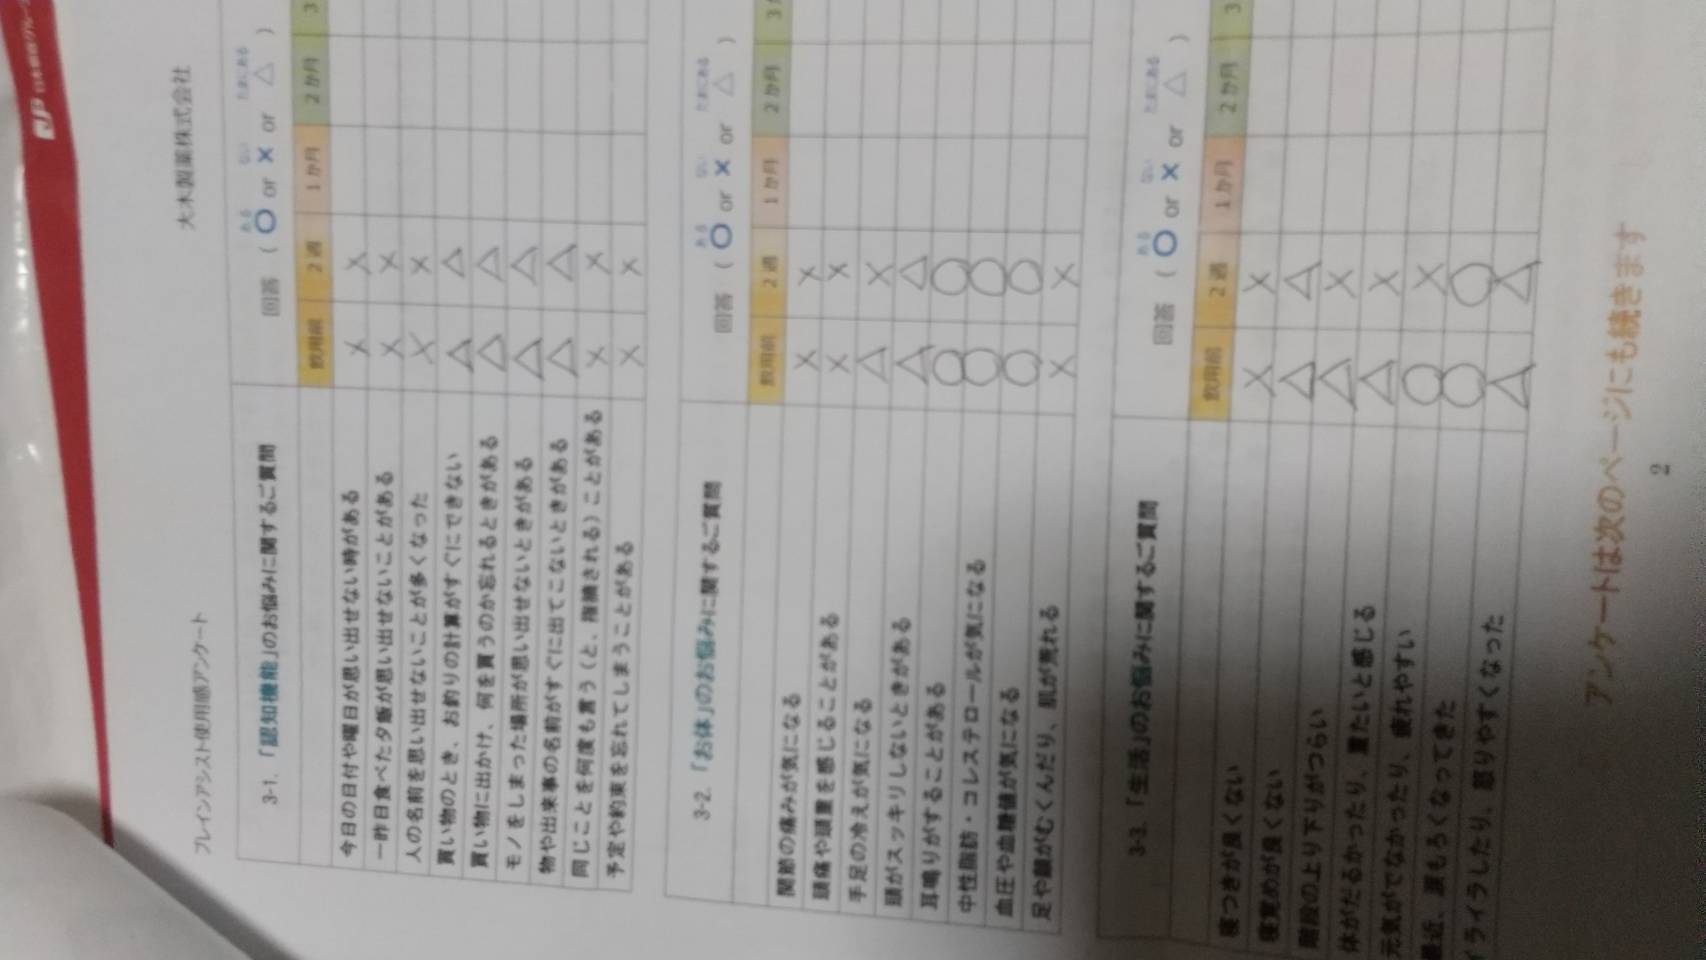 JP 日本郵政グループ
ブレインアシスト使用感アンケート 大木製薬株式会社
3-1.「認知機能」のお悩みに関するご質問 回答 ( ある ○ or ない × or たまにある △ )
飲用前 2週 1か月 2か月 3
今日の日付や曜日が思い出せない時がある × ×
一昨日食べた夕飯が思い出せないことがある × ×
人の名前を思い出せないことが多くなった × ×
買い物のとき、お釣りの計算がすぐにできない △ △
買い物に出かけ、何を買うのか忘れるときがある △ △
モノをしまった場所が思い出せないときがある △ △
物や出来事の名前がすぐに出てこないときがある △ △
同じことを何度も言う(と、指摘される)ことがある × ×
予定や約束を忘れてしまうことがある × ×
3-2.「お体」のお悩みに関するご質問 回答 ( ある ○ or ない × or たまにある △ )
飲用前 2週 1か月 2か月 3
関節の痛みが気になる × ×
頭痛や頭重を感じることがある × ×
手足の冷えが気になる △ ×
頭がスッキリしないときがある △ △
耳鳴りがすることがある ○ ○
中性脂肪・コレステロールが気になる ○ ○
血圧や血糖値が気になる ○ ○
足や顔がむくんだり、肌が荒れる × ×
3-3.「生活」のお悩みに関するご質問 回答 ( ある ○ or ない × or たまにある △ )
飲用前 2週 1か月 2か月 3
寝つきが良くない × ×
寝覚めが良くない △ △
階段の上り下りがつらい △ ×
体がだるかったり、重たいと感じる △ ×
元気がでなかったり、疲れやすい ○ ×
最近、涙もろくなってきた ○ ○
イライラしたり、怒りやすくなった △ △
アンケートは次のページにも続きます
2